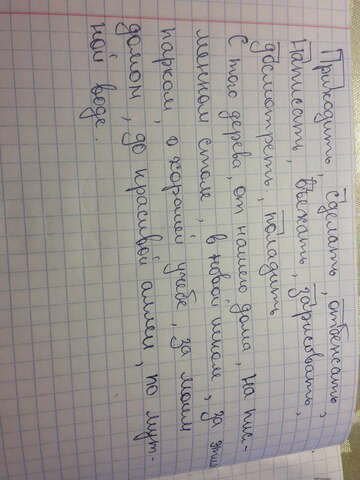 Приходить, сделать, отбежать,
написать, въехать, зарисовать,
досмотреть, поладить
С того дерева, от нашего дома, на пись-
менном столе, в новой школе, за этим
парком, о хорошей учёбе, за моим
домом, до красивой аллеи, по мут-
ной воде.